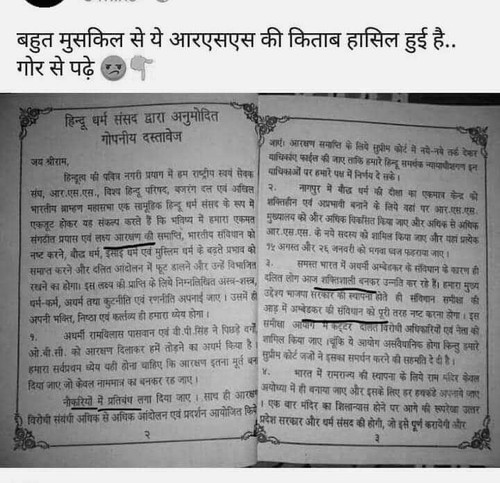 बहुत मुसकिल से ये आरएसएस की किताब हासिल हुई है..
गोर से पढ़े
हिन्दू धर्म संसद द्वारा अनुमोदित
गोपनीय दस्तावेज
जय श्रीराम,
हिन्दुत्व की पवित्र नगरी प्रयाग में हम राष्ट्रीय स्वयं सेवक
संघ, आर.एस.एस., विश्व हिन्दू परिषद, बजरंग दल एवं अखिल
भारतीय ब्राह्मण महासभा एक सामूहिक हिन्दू धर्म संसद के रूप में
एकजूट होकर यह संकल्प करते हैं कि भविष्य में हमारा एकमत
संगठीत प्रयास एवं लक्ष्य आरक्षण की समाप्ति, भारतीय संविधान को
नष्ट करने, बौद्ध धर्म, इसाई धर्म एवं मुस्लिम धर्म के बढ़ते प्रभाव को
समाप्त करने और दलित आन्दोलन में फूट डालने और उन्हें विभाजित
रखने का होगा। इस लक्ष्य की प्राप्ति के लिये निम्नलिखित अस्त्र-शस्त्र,
धर्म-कर्म, अधर्म तथा कुटनीति एवं रणनीति अपनाई जाए। उसमें ही
अपनी भक्ति, निष्ठा एवं कर्तव्य ही हमारा ध्येय होगा।
१. अधर्मी रामविलास पासवान एवं वी.पी.सिंह ने पिछड़े वर्गों
ओ.बी.सी. को आरक्षण दिलाकर हमें तोड़ने का अधर्म किया है।
हमारा सर्वप्रथम ध्येय यही होना चाहिए कि आरक्षण इतना मूर्त बन
दिया जाए जो केवल नाममात्र का बनकर रह जाए।
नौकरियों में प्रतिबंध लगा दिया जाए। साथ ही आरक्षण
विरोधी संबंधी अधिक से अधिक आंदोलन एवं प्रदर्शन आयोजित किये
२
जाएं। आरक्षण समाप्ति के लिये सुप्रीम कोर्ट में नये-नये तर्क देकर
याचिकाएं फाईल की जाए ताकि हमारे हिन्दू समर्थक न्यायाधीशगण इन
याचिकाओं पर हमारे पक्ष में निर्णय दे सके।
२. नागपुर में बौद्ध धर्म की दीक्षा का एकमात्र केन्द्र को
शक्तिहीन एवं अप्रभावी बनाने के लिये वहां पर आर.एस.एस.
मुख्यालय को और अधिक विकसित किया जाए और अधिक से अधिक
आर.एस.एस. के नये सदस्य को शामिल किया जाए और यहां प्रत्येक
१५ अगस्त और २६ जनवरी को भगवा ध्वज फहराया जाए।
३. समस्त भारत में अधर्मी अम्बेडकर के संविधान के कारण ही
दलित लोग आज शक्तिशाली बनकर उन्नति कर रहे हैं। हमारा मुख्य
उद्देश्य भाजपा सरकार की स्थापना होते ही संविधान समीक्षा की
आड़ में अम्बेडकर की संविधान को पूरी तरह नष्ट करना होगा। इस
समीक्षा आयोग में कट्टर दलित विरोधी अधिकारियों एवं नेता को
शामिल किया जाए (चूंकि ये आयोग असंवैधानिक होगा किन्तु हमारे
सुप्रीम कोर्ट जजों ने इसका समर्थन करने की सहमति दे दी है।
४. भारत में रामराज्य की स्थापना के लिये राम मंदिर केवल
अयोध्या में ही बनाया जाए और इसके लिए हर हथकंडे अपनाये जाएं
। एक बार मंदिर का शिलान्यास होने पर आगे की रूपरेखा उत्तर
प्रदेश सरकार और धर्म संसद की होगी, जो इसे पूर्ण करायेगी और
३